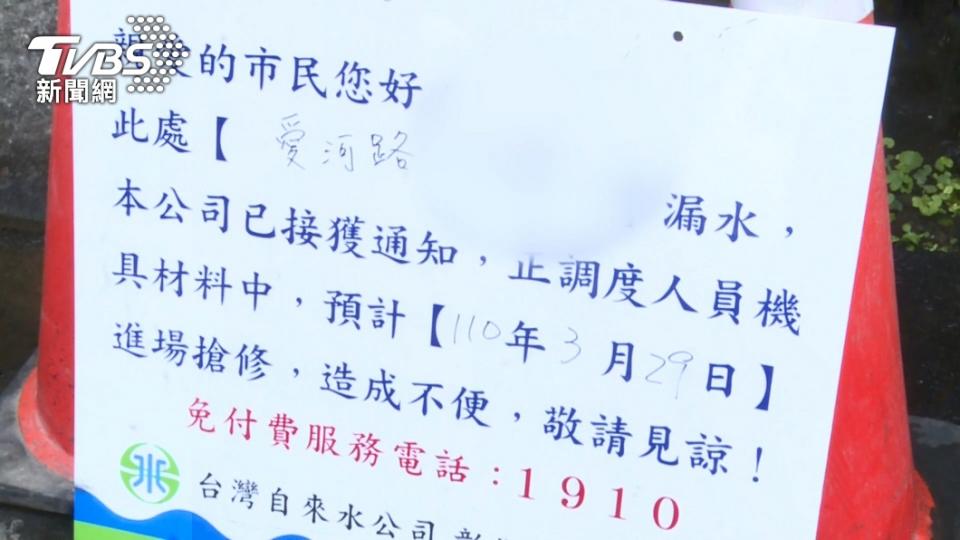 TVBS
新聞網
的市民您好
此處【 愛河路 漏水，
本公司已接獲通知，正調度人員機
具材料中，預計【110年3月29日】
進場搶修，造成不便，敬請見諒！
免付費服務電話：1910
台灣自來水公司